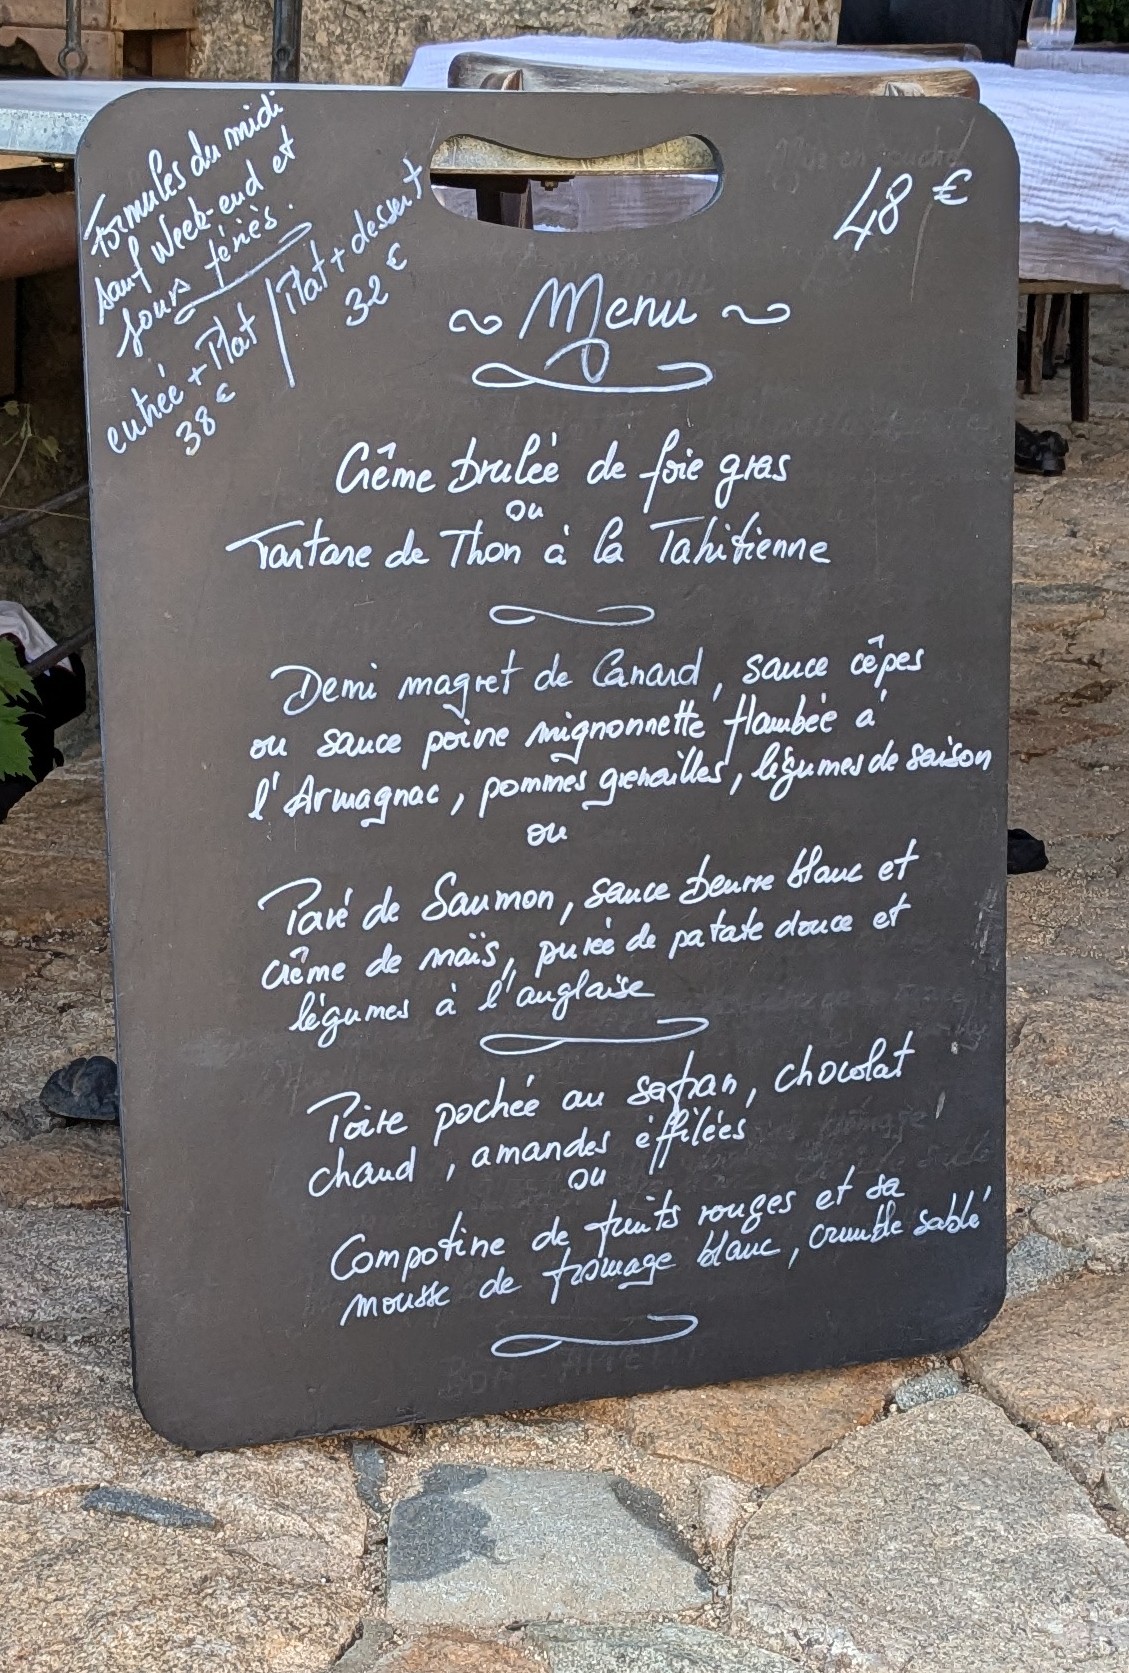 Formules du midi
sauf Week-end et
jours fériés.
entrée + Plat | Plat + dessert
38 € 32 €
48 €
~ Menu ~
Crème brulée de foie gras
ou
Tartare de Thon à la Tahitienne
Demi magret de Canard, sauce cêpes
ou sauce poivre mignonnette flambée à
l'Armagnac, pommes grenailles, légumes de saison
ou
Pavé de Saumon, sauce beurre blanc et
crème de maïs, purée de patate douce et
légumes à l'anglaise
Poire pochée au safran, chocolat
chaud, amandes éffilées
ou
Compotine de fruits rouges et sa
mousse de fromage blanc, crumble sablé
BON APPETIT